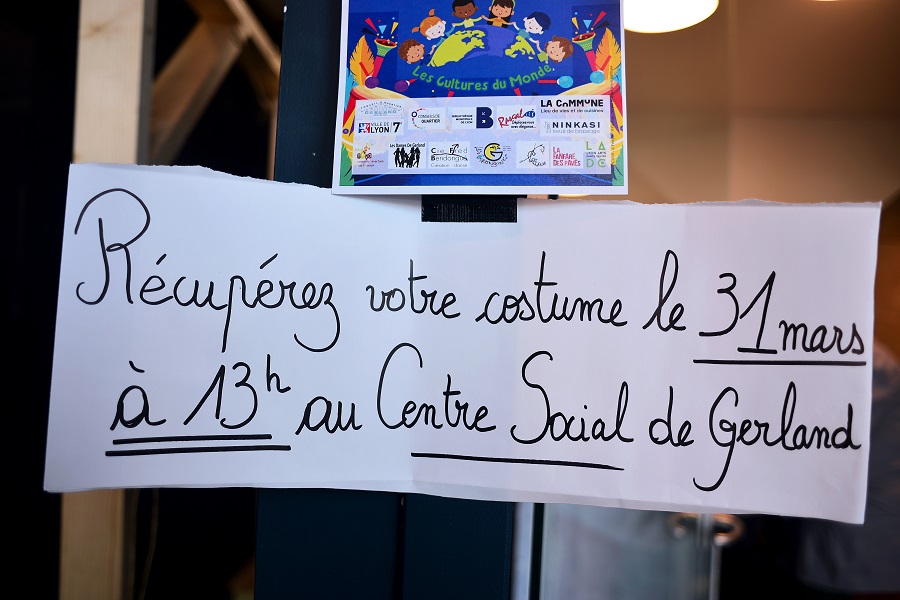 Les Cultures du Monde
CONSEILS DE QUARTIER
BIBLIOTHÈQUE MUNICIPALE DE LYON
B
LA COMMUNE
Lieu de vies et de cuisines
VILLE DE LYON 7
NINKASI
Les Dames De Gerland
LA FANFARE DES PAVÉS
Récupérez votre costume le 31 mars
à 13h au Centre Social de Gerland